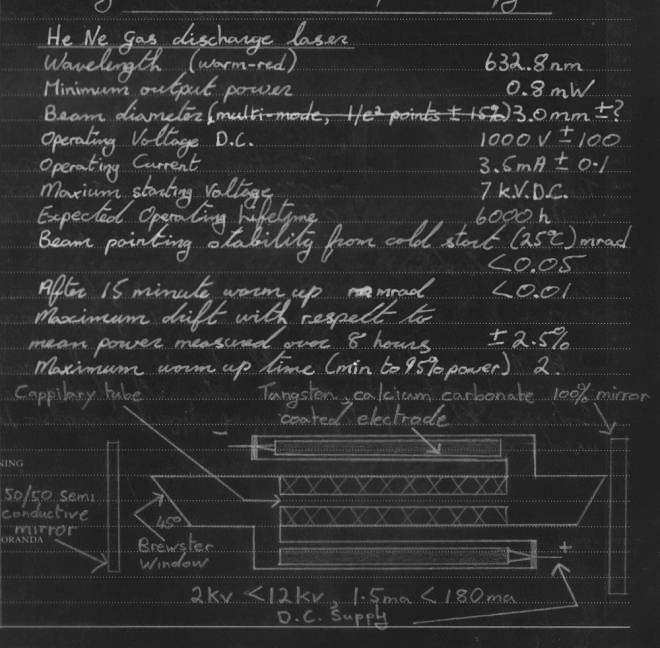 He Ne Gas discharge laser
Wavelength (warm-red) 632.8nm
Minimum output power 0.8mW
Beam diameter (multi-mode, 1/e² points ± 15%) 3.0mm ±?
Operating Voltage D.C. 1000V ± 100
Operating Current 3.5mA ± 0.1
Maxium starting Voltage 7k.V.D.C.
Expected Operating lifetime 6000h
Beam pointing stability from cold start (25°C) mrad
<0.05
After 15 minute warm up mrad <0.01
Maximum drift with respect to
mean power measured over 8 hours ± 2.5%
Maximum worm up time (min to 95% power) 2.
Cappilary tube
Tungsten, calcium carbonate
coated electrode
100% mirror
NING
50/50 Semi
conductive
mirror
ORANDA
45°
Brewster
Window
−
+
2kv <12kv, 1.5ma < 180ma
D.C. Supply